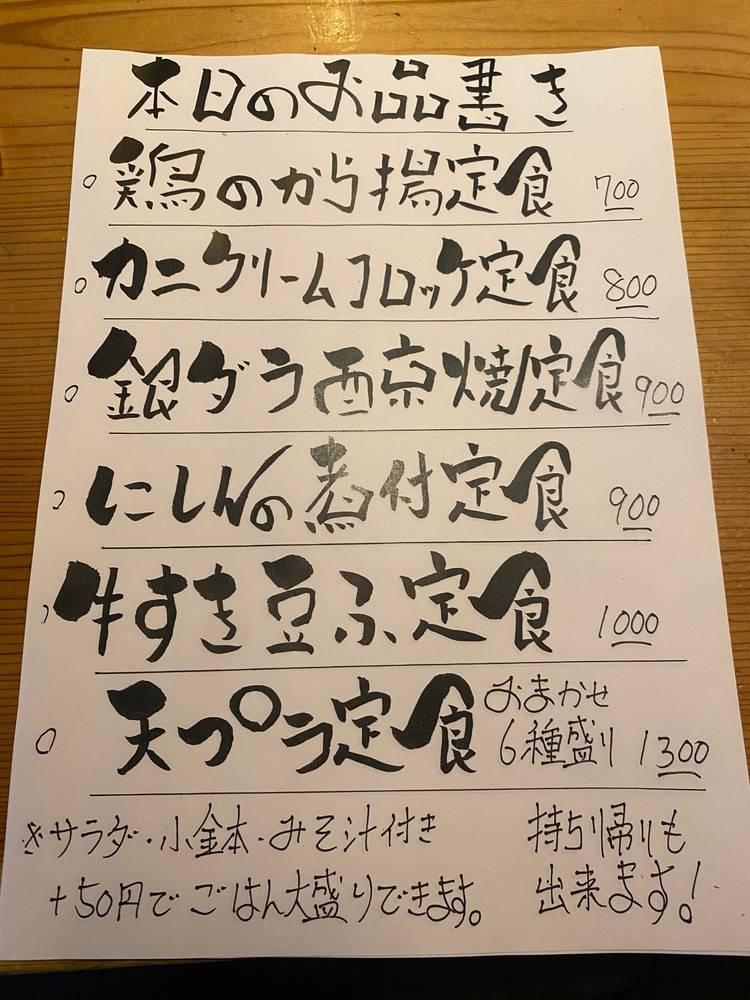 本日のお品書き
○鶏のから揚定食 700
○カニクリームコロッケ定食 800
○銀ダラ西京焼定食 900
○にしんの煮付定食 900
○牛すき豆ふ定食 1000
○天プラ定食 おまかせ
6種盛り 1300
※サラダ・小鉢・みそ汁付き
+50円でごはん大盛りできます。
持ち帰りも
出来ます!